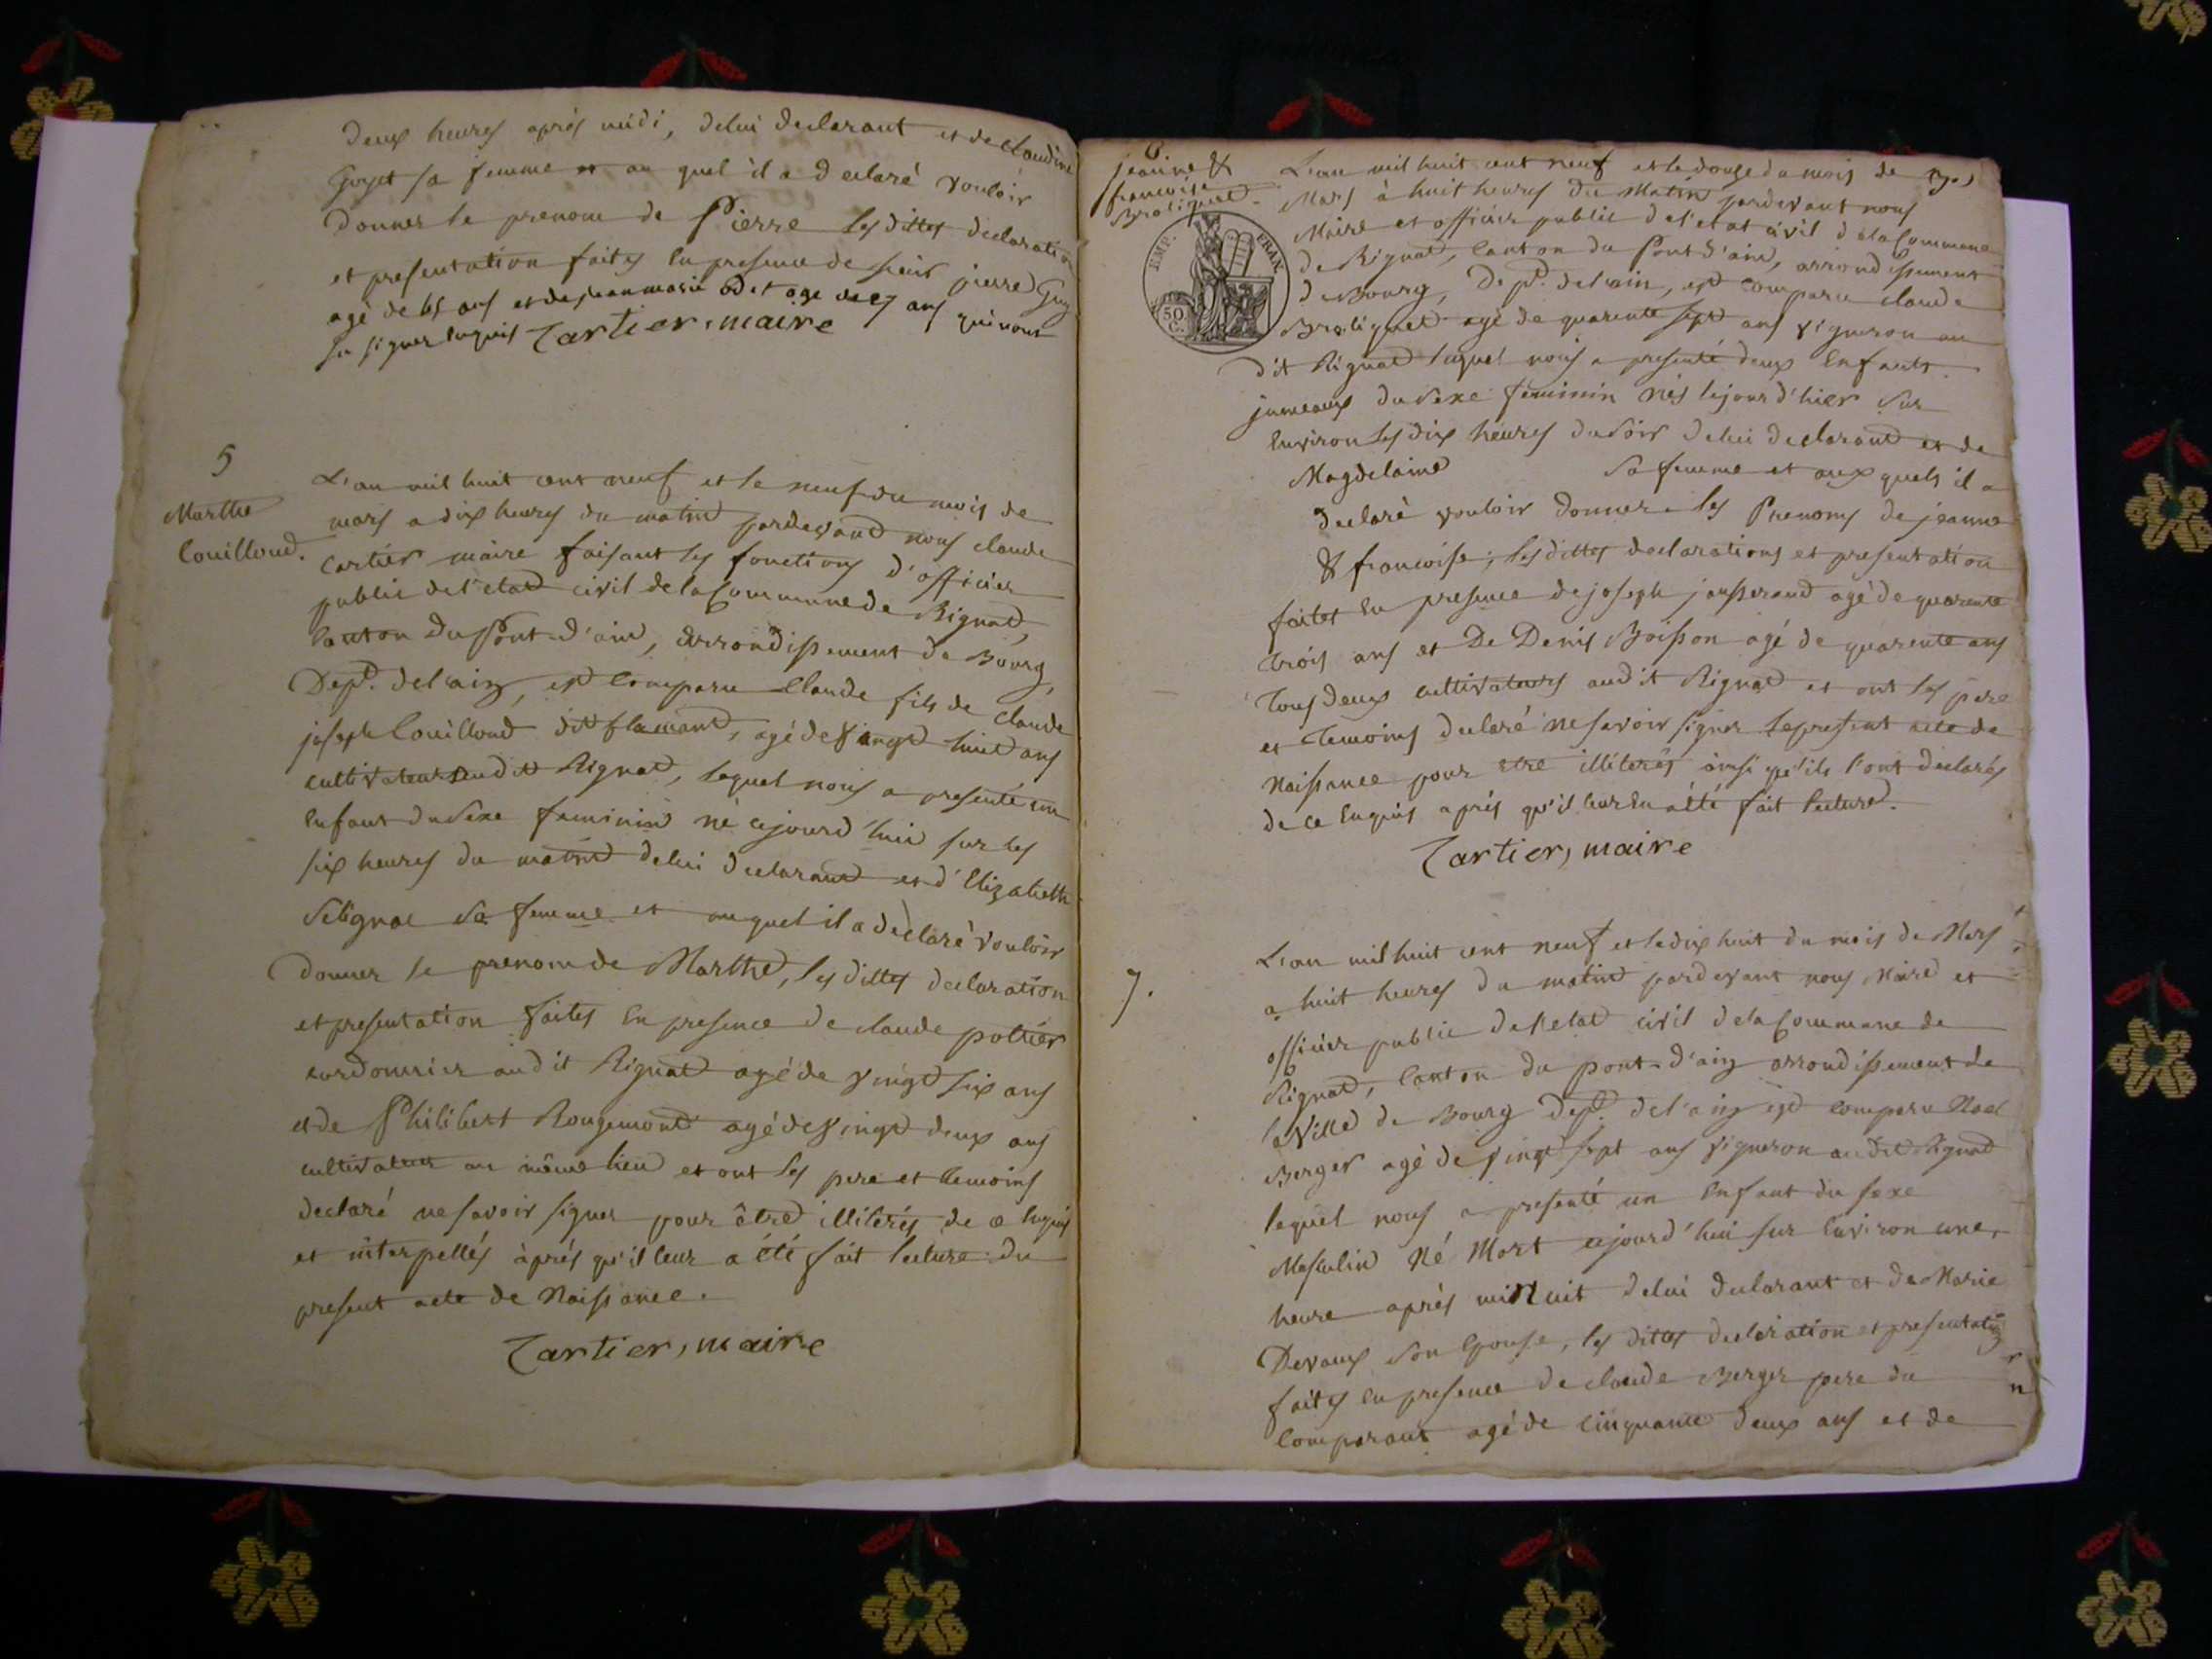 deux heures aprés midi, de lui declarant et de claudine
Goyet sa femme et au quel il a declaré vouloir
donner le prenom de Pierre les dittes declaration
et presentation faites en presence de pierre Guy
agé de 65 ans et de jean marie agé de ans qui nont
su signer enquis Cartier, maire
5
Marthe
Couilloud.
L'an mil huit cent neuf et le neuf du mois de
mars a dix heures du matin pardevant nous claude
Cartier maire faisant les fonctions d'officier
public de l'etat civil de la Commune de Rignat,
Canton du Pont-d'ain, arrondissement de Bourg,
Dept. de l'ain, est comparu Claude fils de claude
joseph Couilloud dit flamant, agé de vingt huit ans
cultivateur audit Rignat, lequel nous a presenté un
Enfant du sexe feminin né cejourd'hui sur les
six heures du matin de lui declarant et d'Elizabeth
Selignac sa femme et auquel il a declaré vouloir
donner le prenom de Marthe, les dittes declaration
et presentation faites En presence de claude poltier
cordonnier audit Rignat agé de vingt six ans
et de Philibert Rougemont agé de vingt deux ans
cultivateur au même lieu et ont les pere et temoins
declaré ne savoir signer pour être illiterés de ce Enquis
et interpellés aprés qu'il leur a été fait lecture du
present acte de Naissance.
Cartier, maire
6.
jeanne &
francoise
Broliquet.
EMP. FRAN.
50 C.
L'an mil huit cent neuf et le douze du mois de
Mars à huit heures du Matin pardevant nous
Maire et officier public de l'etat civil de la Commune
de Rignat, Canton du Pont d'ain, arrondissement
de Bourg, Dept. de l'ain, est comparu claude
Broliquet agé de quarente sept ans vigneron au
dit Rignat lequel nous a presenté deux Enfants
jumeaux du sexe feminin nés le jour d'hier sur
Environ les dix heures du soir de lui declarant et de
Magdelaine sa femme et aux quels il a
declaré vouloir donner les Prenoms de jeanne
& francoise; les dittes declarations et presentation
faites En presence de joseph jousserand agé de quarente
trois ans et De Denis Boisson agé de quarente ans
tous deux cultivateurs audit Rignat et ont les pere
et temoins declaré ne savoir signer le present acte de
Naissance pour etre illiterés ainsi qu'ils l'ont declarés
de ce Enquis aprés qu'il leur En a été fait lecture.
Cartier, maire
7.
L'an mil huit cent neuf et le dix huit du mois de Mars
a huit heures du matin pardevant nous Maire et
officier public de l'etat civil de la Commune de
Rignat, Canton du pont-d'ain arrondissement de
la Ville de Bourg Dept. de l'ain est comparu Noel
Berger agé de vingt sept ans vigneron audit Rignat
lequel nous a presenté un Enfant du sexe
Masculin Né Mort cejourd'hui sur Environ une
heure aprés minuit de lui declarant et de Marie
Devaux son Epouse, les dittes declaration et presentation
faites En presence de claude Berger pere du
Comparant agé de cinquante deux ans et de